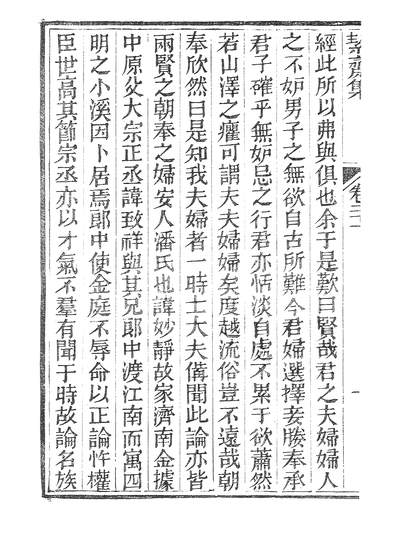 絜齋集
卷二十一
一
經此所以弗與俱也余于是歎曰賢哉君之夫婦婦人
之不妒男子之無欲自古所難今君婦選擇妾媵奉承
君子確乎無妒忌之行君亦恬淡自處不累于欲蕭然
若山澤之癯可謂夫夫婦婦矣度越流俗豈不遠哉朝
奉欣然曰是知我夫婦者一時士大夫僃聞此論亦皆
兩賢之朝奉之婦安人潘氏也諱妙靜故家濟南金據
中原父大宗正丞諱致祥與其兄郞中渡江南而寓四
明之小溪因卜居焉郞中使金庭不辱命以正論忤權
臣世高其節宗丞亦以才氣不羣有聞于時故論名族